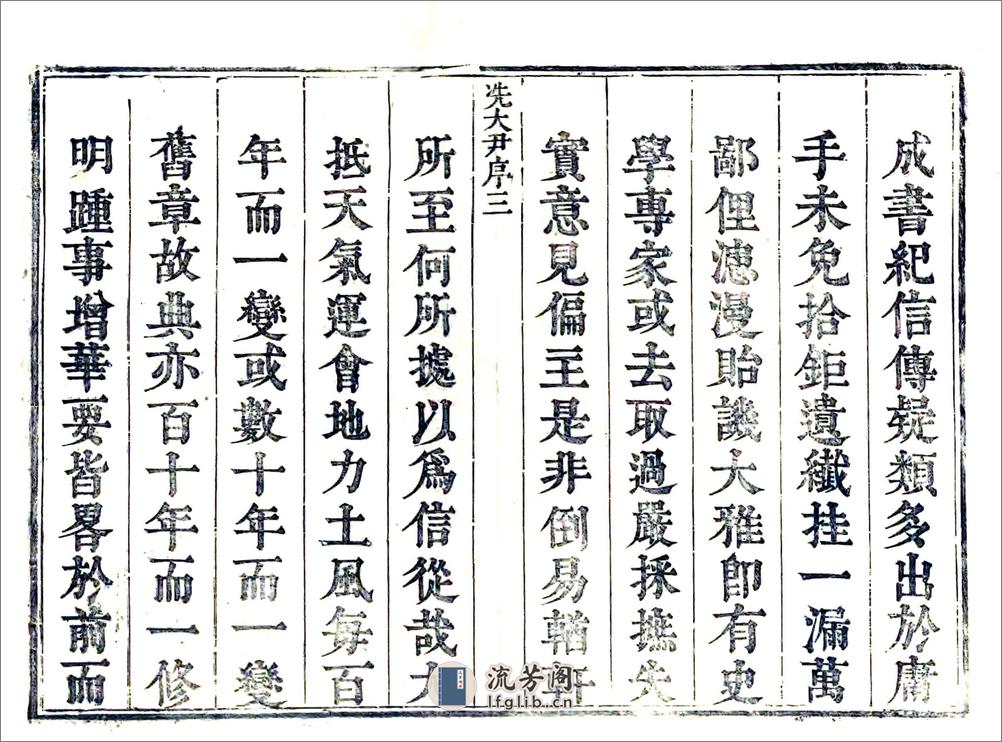 成書紀信傳疑類多出於庸
手未免拾鉅遺纖挂一漏萬
鄙俚漶漫貽譏大雅即有史
學專家或去取過嚴採摭失
實意見偏主是非倒易輶軒
冼大尹序三
所至何所據以爲信從哉大
抵天氣運會地力土風每百
年而一變或數十年而一變
舊章故典亦百十年而一修
明踵事增華要皆畧於前而
流芳阁
lfglib.cn